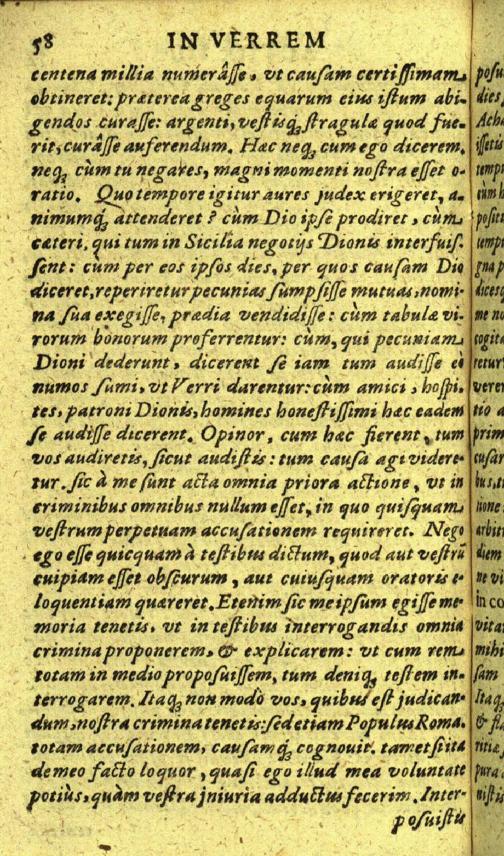 58 IN VERREM
centena millia numerâsse, vt causam certissimam
obtineret: præterea greges equarum eius istum abi-
gendos curasse: argenti, vestisq́; stragulæ quod fue-
rit, curâsse auferendum. Hæc neq; cum ego dicerem,
neq; cùm tu negares, magni momenti nostra esset o-
ratio. Quo tempore igitur aures judex erigeret, a-
nimumq́; attenderet? cùm Dio ipse prodiret, cùm
cæteri, qui tum in Sicilia negotijs Dionis interfuis-
sent: cùm per eos ipsos dies, per quos causam Dio
diceret, reperiretur pecunias sumpsisse mutuas, nomi-
na sua exegisse, prædia vendidisse: cùm tabulæ vi-
rorum bonorum proferrentur: cùm, qui pecuniam
Dioni dederunt, dicerent se iam tum audisse eò
numos sumi, vt Verri darentur: cùm amici, hospi-
tes, patroni Dionis, homines honestissimi hæc eadem
se audisse dicerent. Opinor, cum hæc fierent, tum
vos audiretis, sicut audistis: tum causa agi videre-
tur. sic à me sunt acta omnia priora actione, vt in
criminibus omnibus nullum esset, in quo quisquam
vestrum perpetuam accusationem requireret. Nego
ego esse quicquam à testibus dictum, quod aut vestrū
cuipiam esset obscurum, aut cuiusquam oratoris e-
loquentiam quæreret. Etenim sic me ipsum egisse me-
moria tenetis, vt in testibus interrogandis omnia
crimina proponerem, & explicarem: vt cum rem
totam in medio proposuissem, tum deniq; testem in-
terrogarem. Itaq; non modò vos, quibus est judican-
dum, nostra crimina tenetis: sed etiam Populus Roma.
totam accusationem, causamq́; cognouit. tametsi ita
de meo facto loquor, quasi ego illud mea voluntate
potiùs, quàm vestra jniuria adductus fecerim. Inter-
posuistis